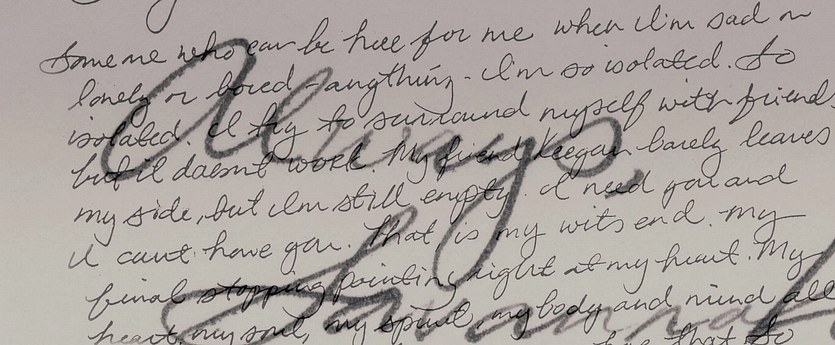 Someone who can be here for me when I'm sad or
lonely or bored - anything - I'm so isolated. So
isolated. I try to surround myself with friends
but it doesn't work. My friend Keegan barely leaves
my side, but I'm still empty. I need you and
I can't have you. That is my wits end. My
final stopping pointing right at my heart. My
heart, my soul, my spirit, my body and mind all
that So
Always,
Savannah